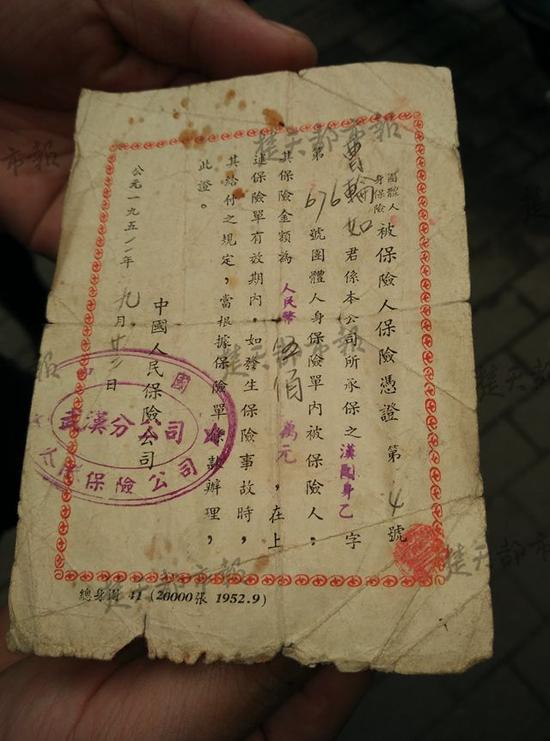 團體人身保險 被保險人保險憑證 第4號
曹輪如君係本公司所承保之漢團身乙字
第676號團體人身保險單內被保險人。
其保險金額為人民幣伍佰萬元,在上
述保險單有效期內,如發生保險事故時,
其給付之規定,當根據保險單條款辦理,
此證。
中國人民保險公司
公元一九五二年九月廿三日
中國人民保險公司
武漢分公司
總身團 41 (20000張 1952.9)
楚天都市報
楚天都市報
楚天都市報
楚天都市報
市報